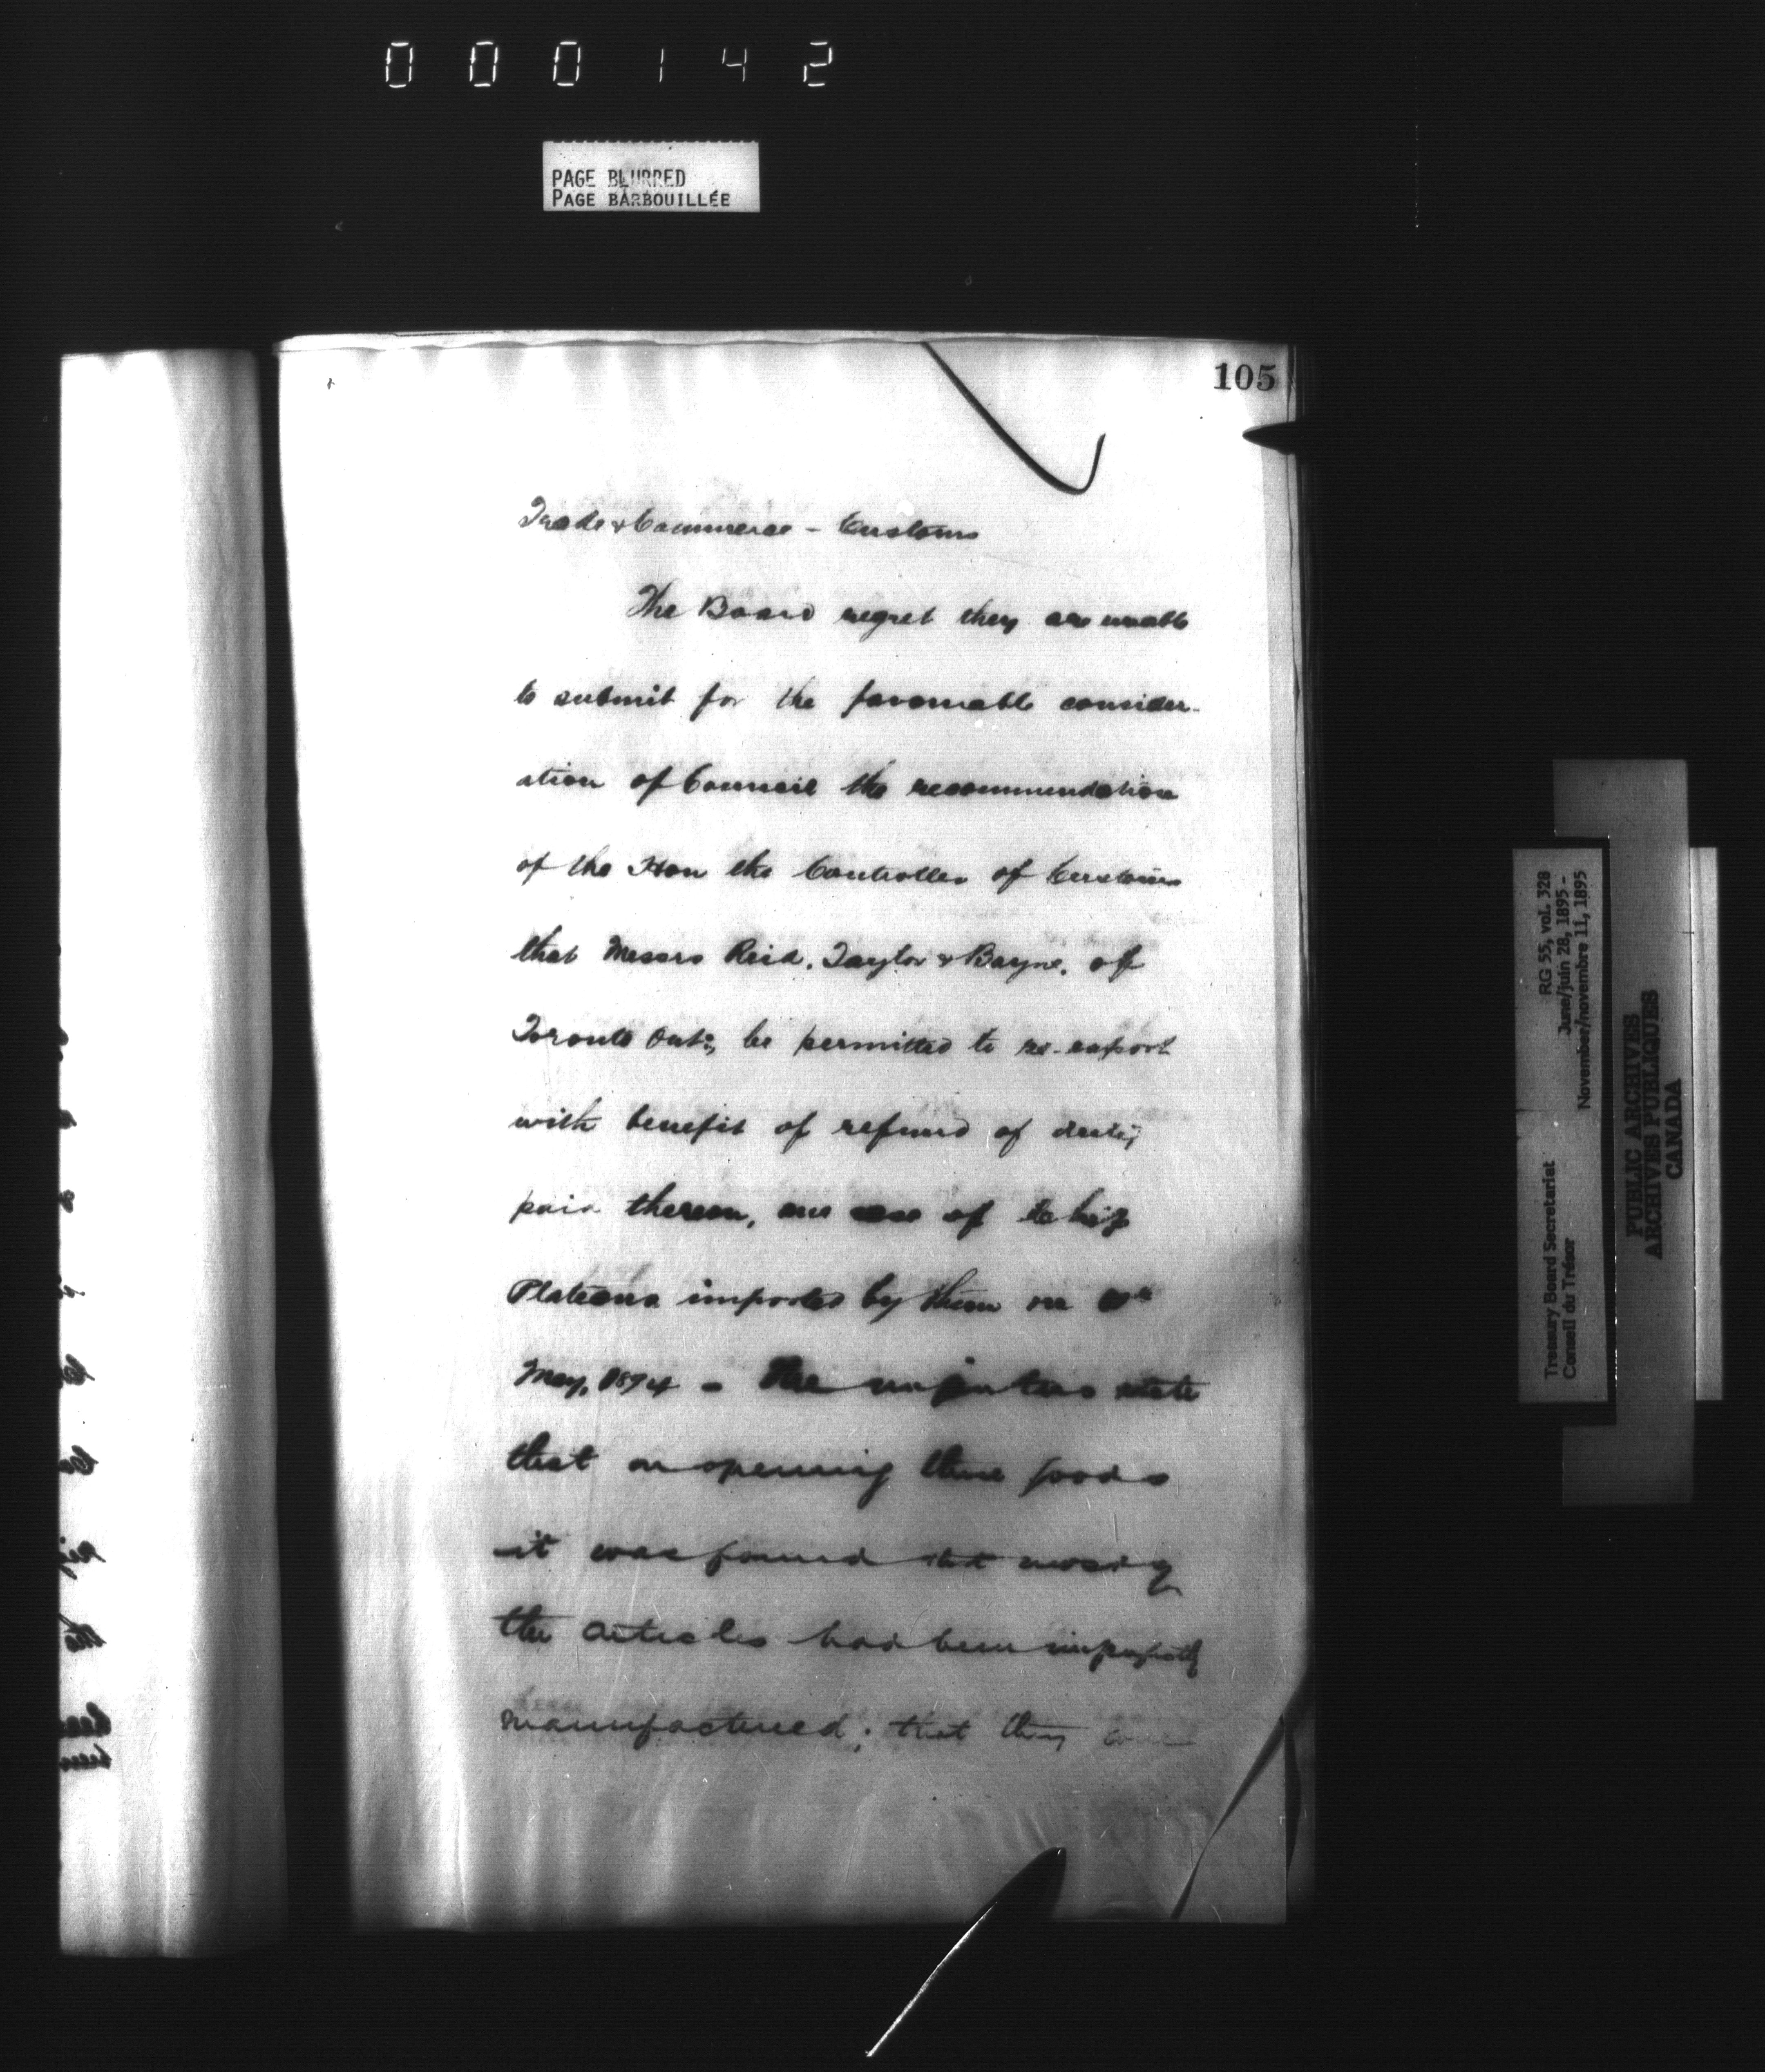 000142
PAGE BLURRED
PAGE BARBOUILLÉE
105
Trade & Commerce - Customs
The Board regret they are unable
to submit for the favourable consider-
ation of Council the recommendation
of the Hon the Controller of Customs
that Messrs Reid, Taylor & Bayne, of
Toronto Ont:, be permitted to re-export
with benefit of refund of duty
paid thereon, one case of
imported by them on
May, 1894 - The importers state
that on opening these goods
it was found that
the articles had been imperfectly
manufactured; that they
RG 55, vol. 328
June/juin 28, 1895 -
November/novembre 11, 1895
Treasury Board Secretariat
Conseil du Trésor
PUBLIC ARCHIVES
ARCHIVES PUBLIQUES
CANADA